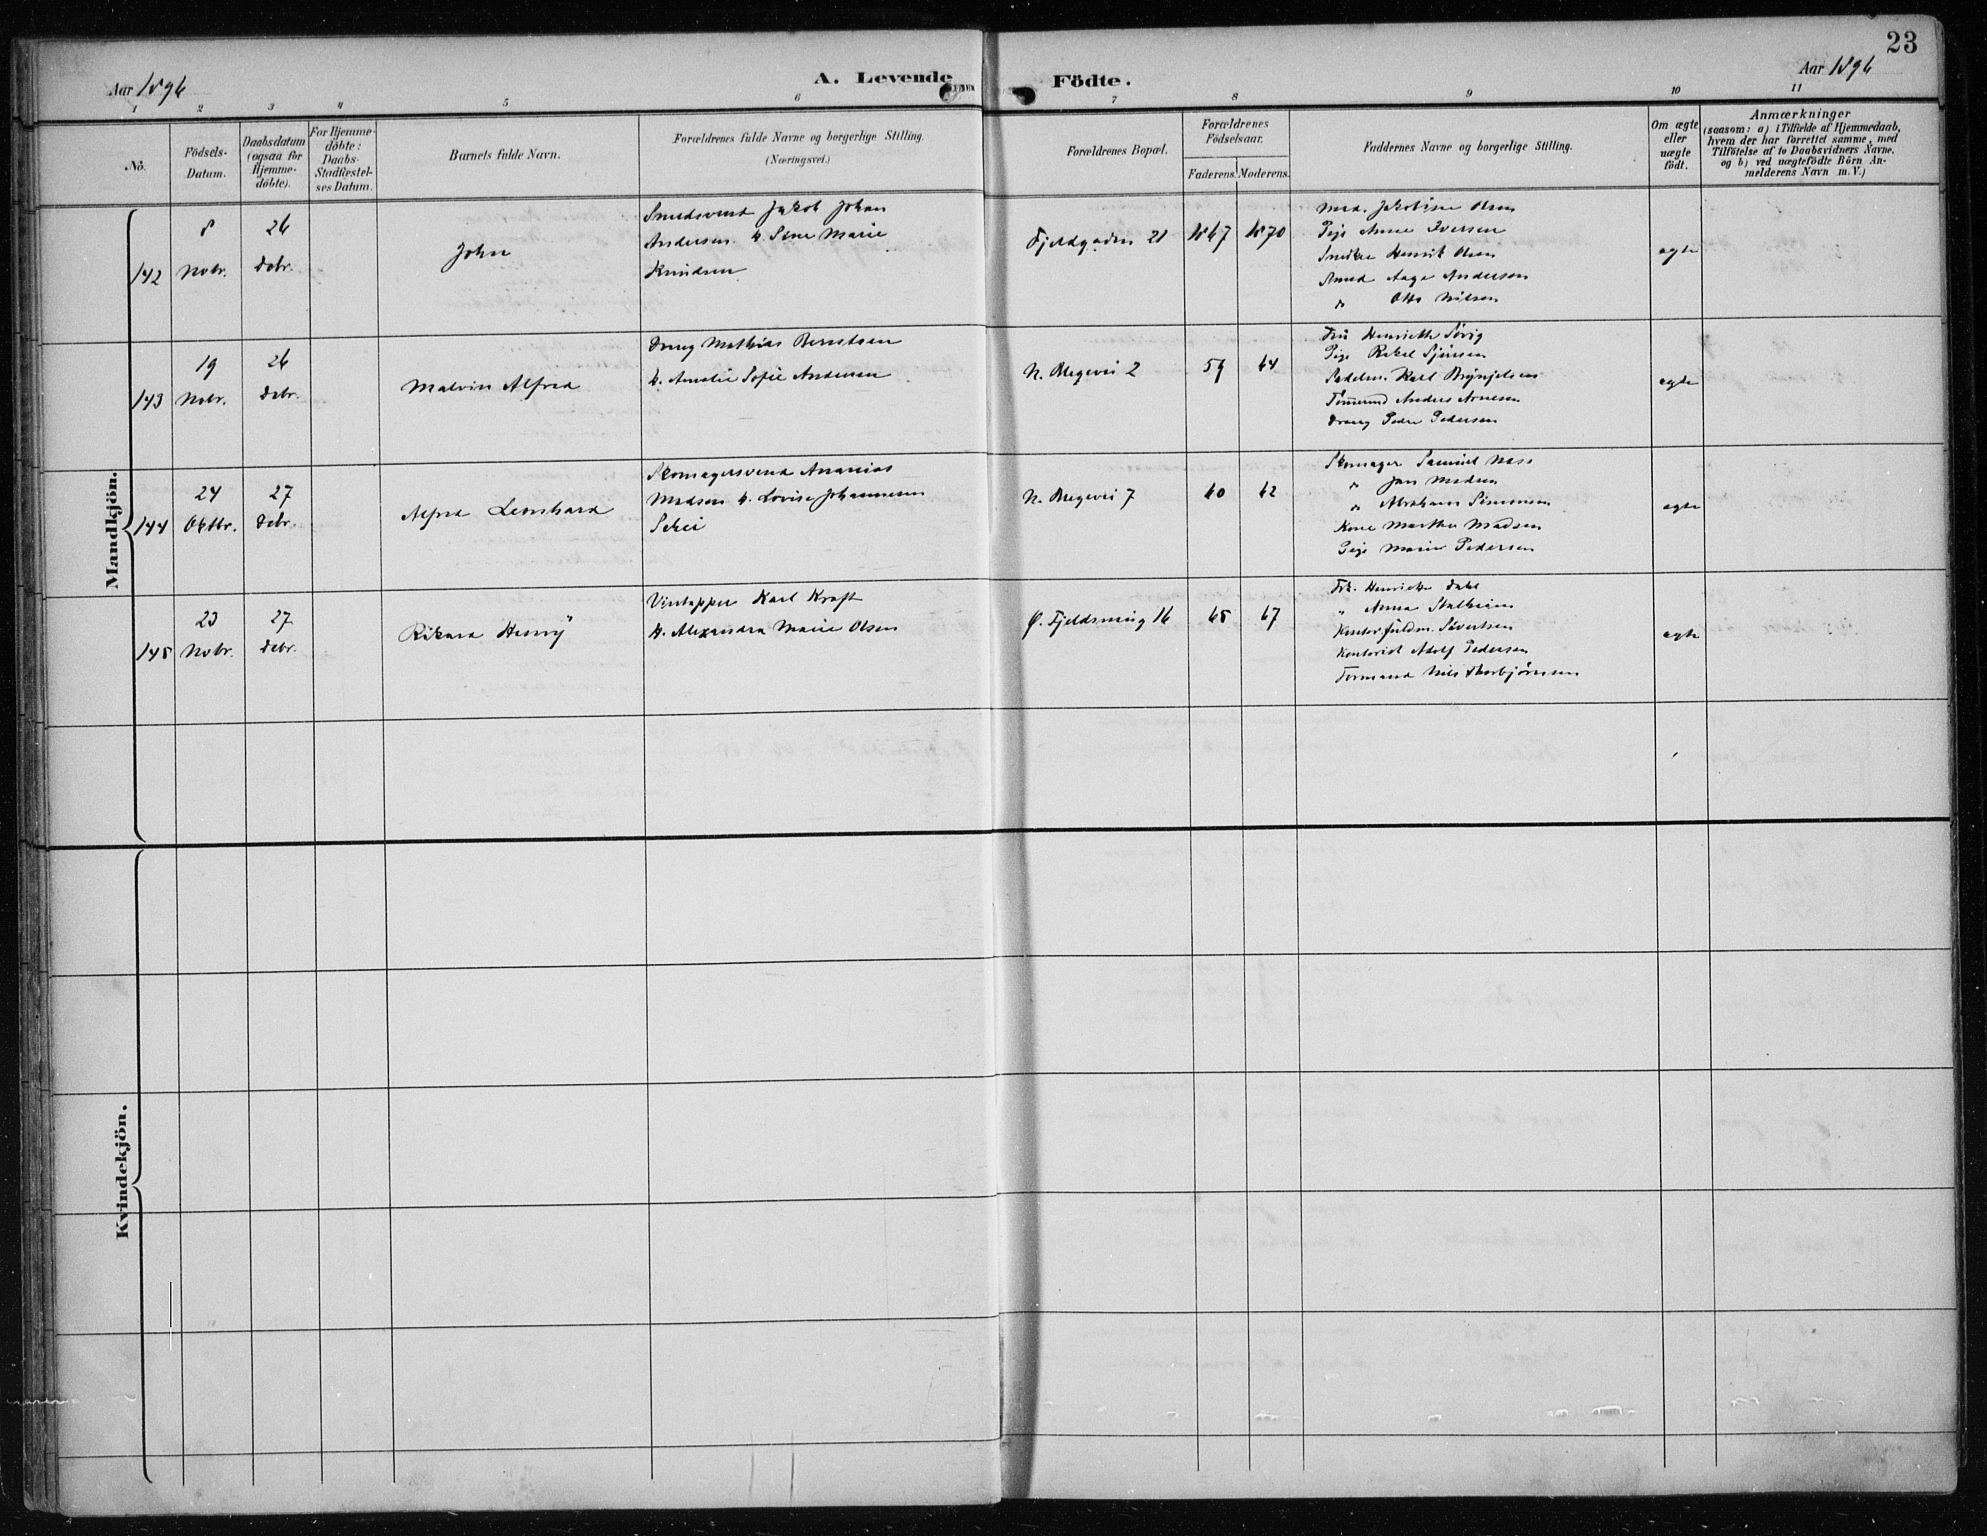 23
Aar 1896
A. Levende Födte.
Aar 1896
1 2 3 4 5 6 7 8 9 10 11
No.
Födsels-Datum.
Daabsdatum (ogsaa for Hjemme-döbte).
For Hjemme-döbte: Daabs-Stadfestel-ses Datum.
Barnets fulde Navn.
Forældrenes fulde Navne og borgerlige Stilling.
(Næringsvei.)
Forældrenes Bopæl.
Forældrenes Födselsaar.
Faderens. Moderens.
Faddernes Navne og borgerlige Stilling.
Om ægte eller uægte födt.
Anmærkninger
(saasom: a) i Tilfælde af Hjemmedaab,
hvem der har forrettet samme, med
Tilföielse af to Daabsvidners Navne,
og b) ved uægtefödte Börn An-
melderens Navn m.V.)
Mandkjön.
142
8 Novbr.
26 Debr.
John
Smedsvend Jakob Johan
Andersen h. Sine Marie
Knudsen
Fjeldgaden 21
1867 1870
Mad. Jakobine Olsen
Pige Anna Iversen
Snedker Henrik Olsen
Smed Aage Andersen
" Otto Nilsen
ægte
143
19 Novbr.
26 Debr.
Malvin Alfred
Dreng Mathias Berntsen
h. Amalie Sofie Andersen
N. Blegevei 2
59 64
Fru Henriette Sørig
Pige Rakel
Karl Brynjelsen
Tømmermd Andres Arnesen
Dreng Peder Pedersen
ægte
144
24 Oktbr.
27 Debr.
Alfred Leonhard
Skomagersvend Ananias
Madsen h. Lovise Johannesen
N. Blegevei 7
60 62
Skomager Samuel Næss
" Jan Madsen
" Abraham Simonsen
Kone Martha Madsen
Pige Marie Pedersen
ægte
145
23 Novbr.
27 Debr.
Rikard Henry
Vintapper Karl Kraft
h. Alexandra Marie Olsen
Ø. Fjeldsmug 16
65 67
Frk. Henrikke Dahl
" Anna Stalheim
Kontorfuldm. Sivertsen
Kontorist Adolf Pedersen
Formand Nils Thorbjørnsen
ægte
Kvindekjön.